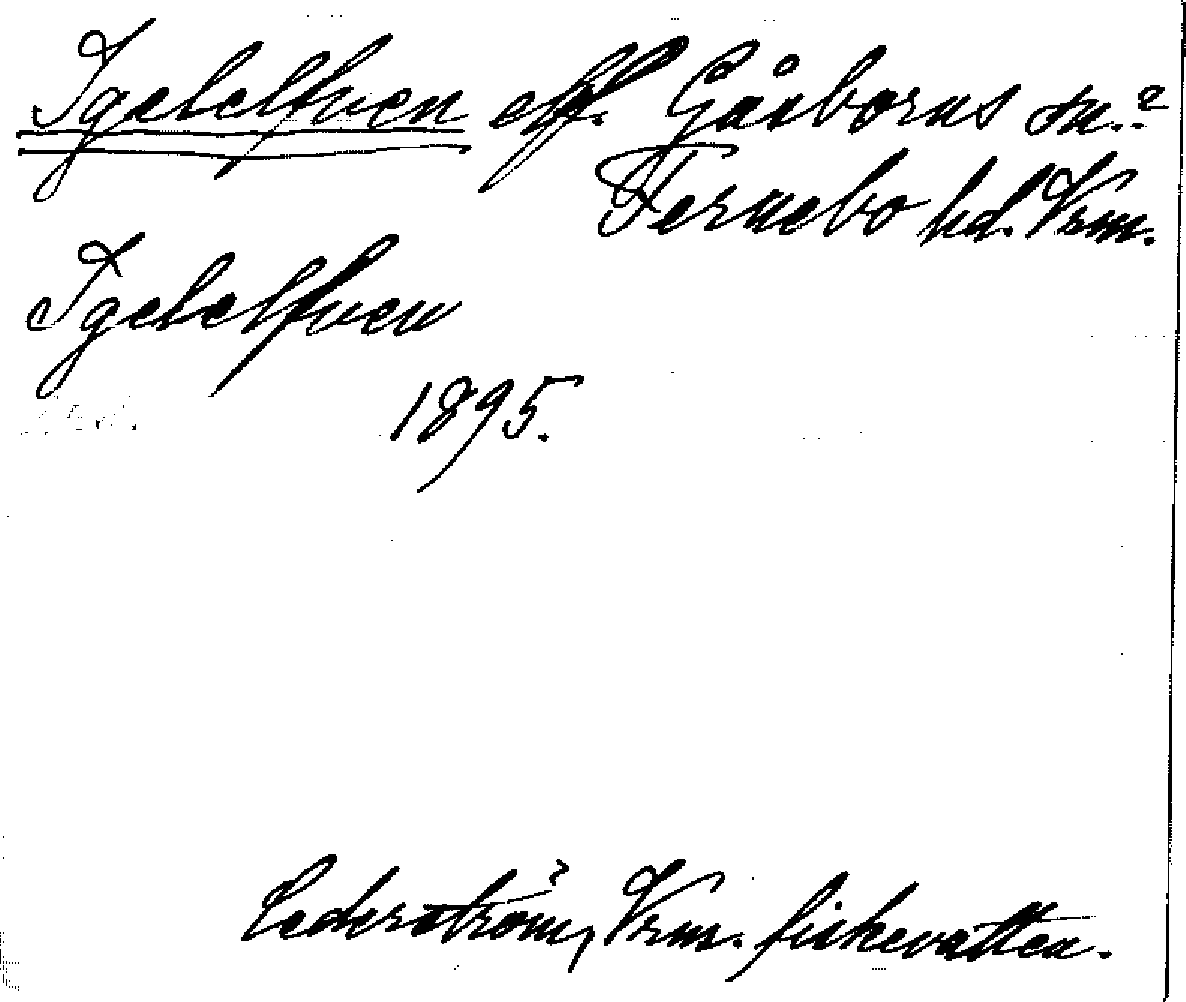 Igelelfven elf. Gåsborns sn.?
Fernebo hd. Vrm.
Igelelfven
1895.
Cederström, Vrm. fiskevatten.